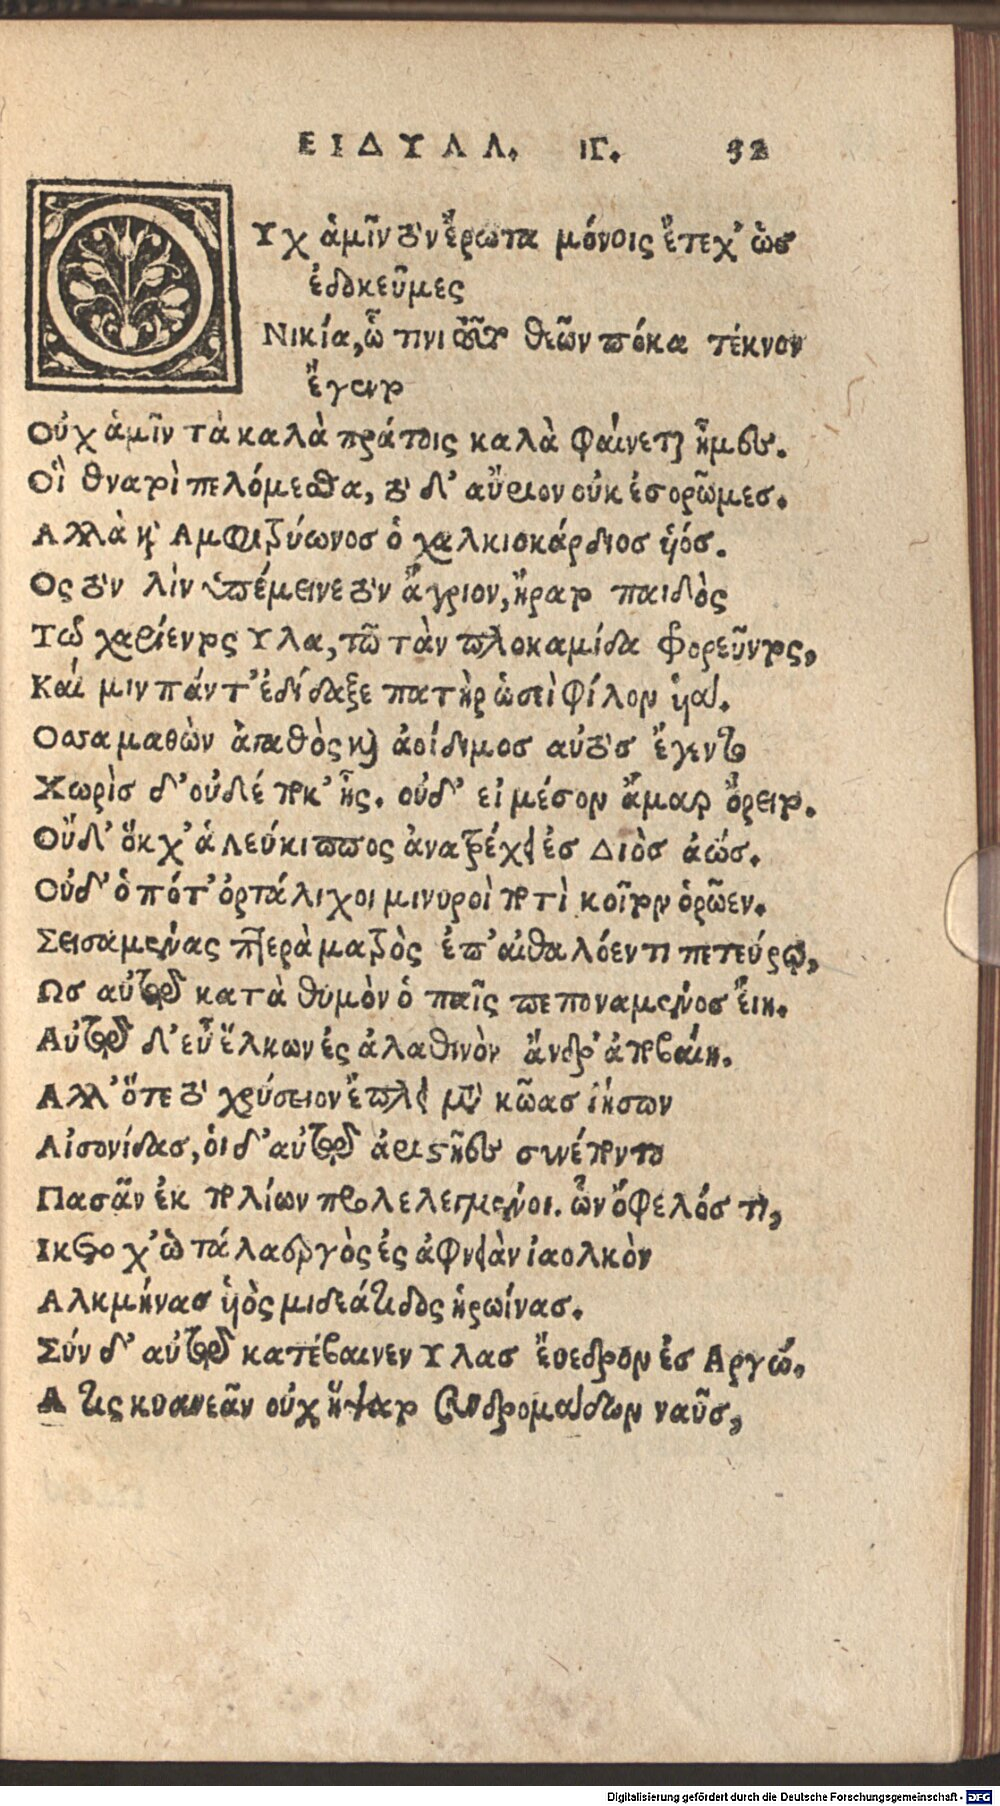 ΕΙΔΥΛΛ. ΙΓ. 92
ΟΥχ ἁμῖν τὸν ἔρωτα μόνοις ἔτεχ' ὡς
ἐδοκεῦμες
Νικία, ᾧ τινι τοῦτο θεῶν πόκα τέκνον
ἔγεντο
Οὐχ ἁμῖν τὰ καλὰ πράτοις καλὰ φαίνεται ἦμεν.
Οἳ θνατοὶ πελόμεσθα, τὸ δ' αὔριον οὐκ ἐσορῶμες.
Αλλὰ καὶ Αμφιτρύωνος ὁ χαλκεοκάρδιος υἱός.
Ος τὸν λὶν ὑπέμεινε τὸν ἄγριον, ἤρατο παιδὸς
Τοῦ χαρίεντος Υλα, τῶ τὰν πλοκαμίδα φορεῦντος,
Καί μιν πάντ' ἐδίδαξε πατὴρ ὡσεὶ φίλον υἱα.
Οσσα μαθὼν ἀγαθὸς καὶ ἀοίδιμος αὐτὸς ἔγεντο
Χωρὶς δ' οὐδέποκ' ἦς. οὐδ' εἰ μέσον ἆμαρ ὄροιτο.
Οὔδ' ὅκχ' ἁ λεύκιππος ἀνατρέχει ἐς Διὸς ἀώς.
Οὐδ' ὁπότ' ὀρτάλιχοι μινυροὶ ποτὶ κοῖτον ὁρῶεν.
Σεισαμένας πτερὰ ματρὸς ἐπ' αἰθαλόεντι πετεύρῳ,
Ως αὐτῷ κατὰ θυμὸν ὁ παῖς πεποναμένος εἴη.
Αὐτῷ δ' εὖ ἕλκων ἐς ἀλαθινὸν ἄνδρ' ἀποβαίη.
Αλλ' ὅτε τὸ χρύσειον ἔπλει μετὰ κῶας ἰήσων
Αἰσονίδας, οἱ δ' αὐτῷ ἀριστῆες συνέποντο
Πασᾶν ἐκ πολίων προλελεγμένοι. ὧν ὄφελός τι,
Ικετο χ' ὡ ταλαεργὸς ἐς ἀφνειὰν ἰαολκὸν
Αλκμήνας υἱὸς μιδεάτιδος ἡρωίνας.
Σύν δ' αὐτῷ κατέβαινεν Υλας εὔεδρον ἐς Αργώ.
Α τις κυανεᾶν οὐχ ἥψατο συνδρομάδων ναῦς,
Digitalisierung gefördert durch die Deutsche Forschungsgemeinschaft - DFG